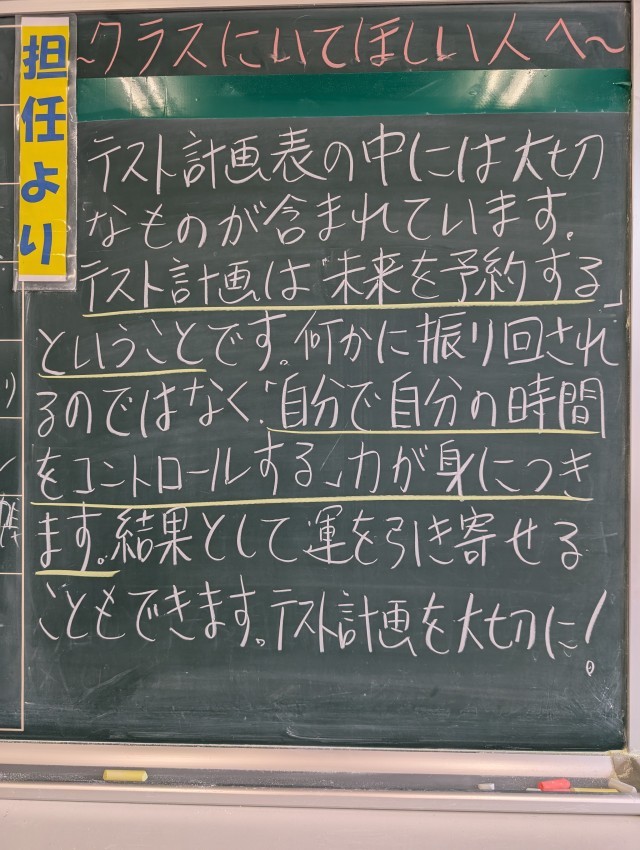 担任より
~クラスにいてほしい人へ~
テスト計画表の中には大切
なものが含まれています。
テスト計画は「未来を予約する」
ということです。何かに振り回され
るのではなく、「自分で自分の時間
をコントロールする」力が身につき
ます。結果として運を引き寄せる
こともできます。テスト計画を大切に!